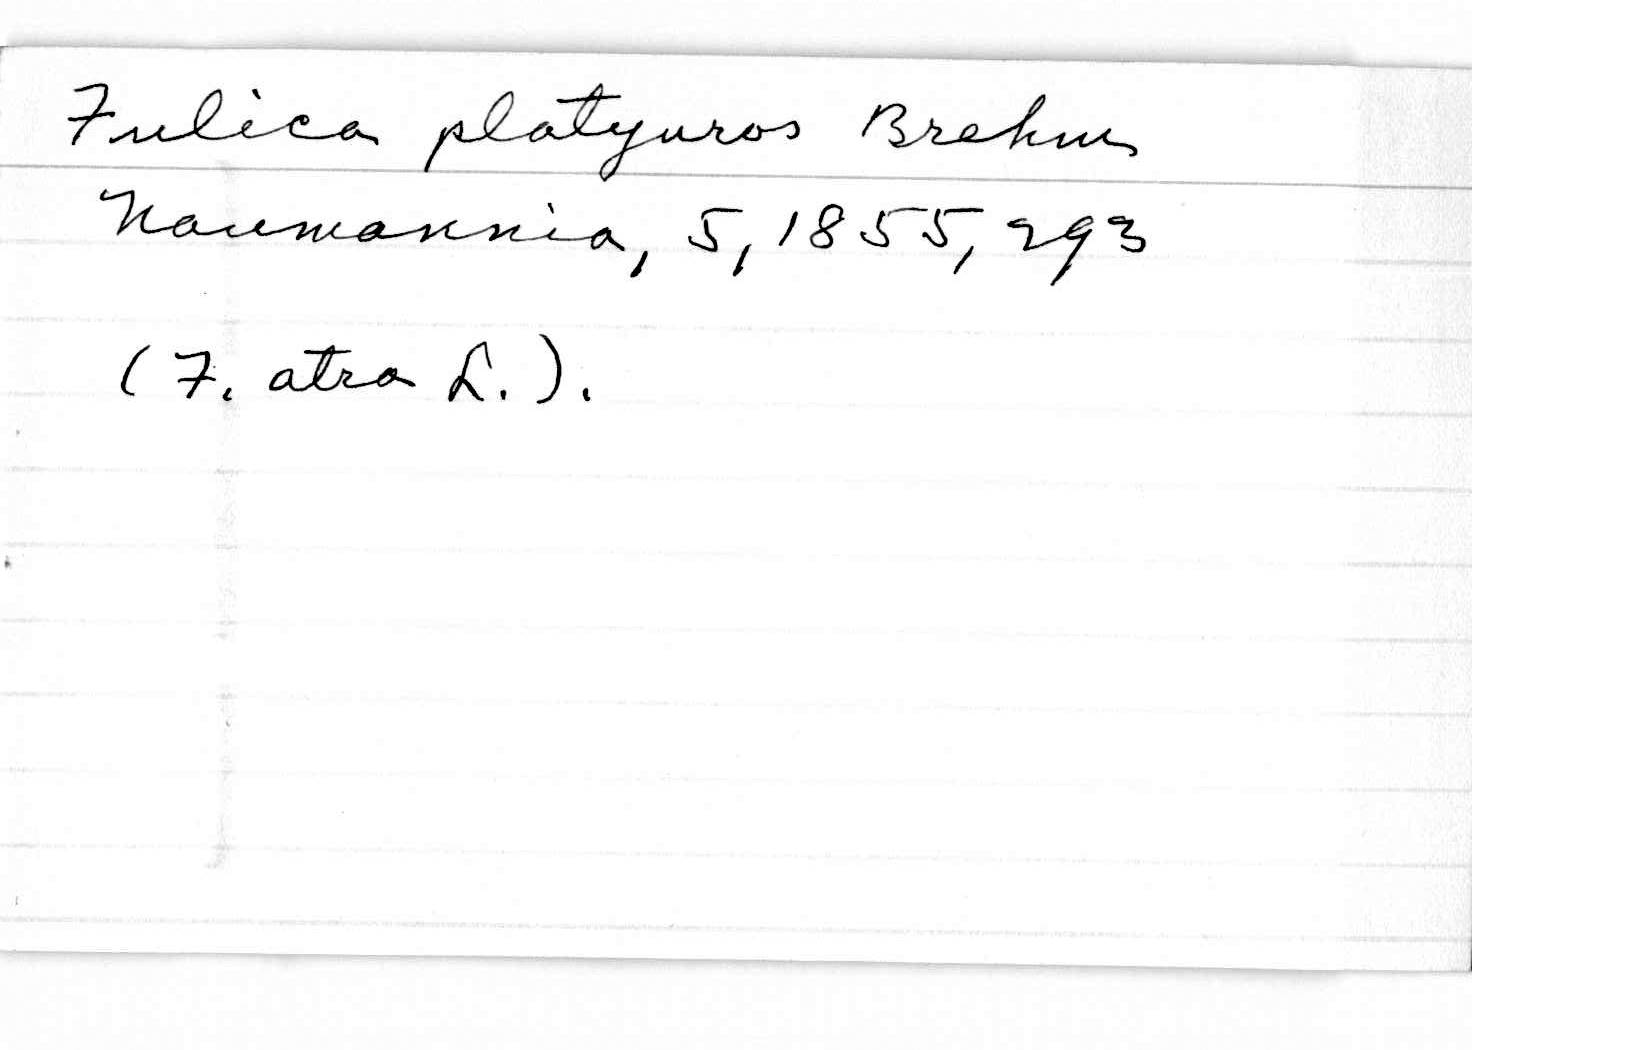 Fulica platyuros Brehm
Naumannia, 5, 1855, 293
(F. atra L.).